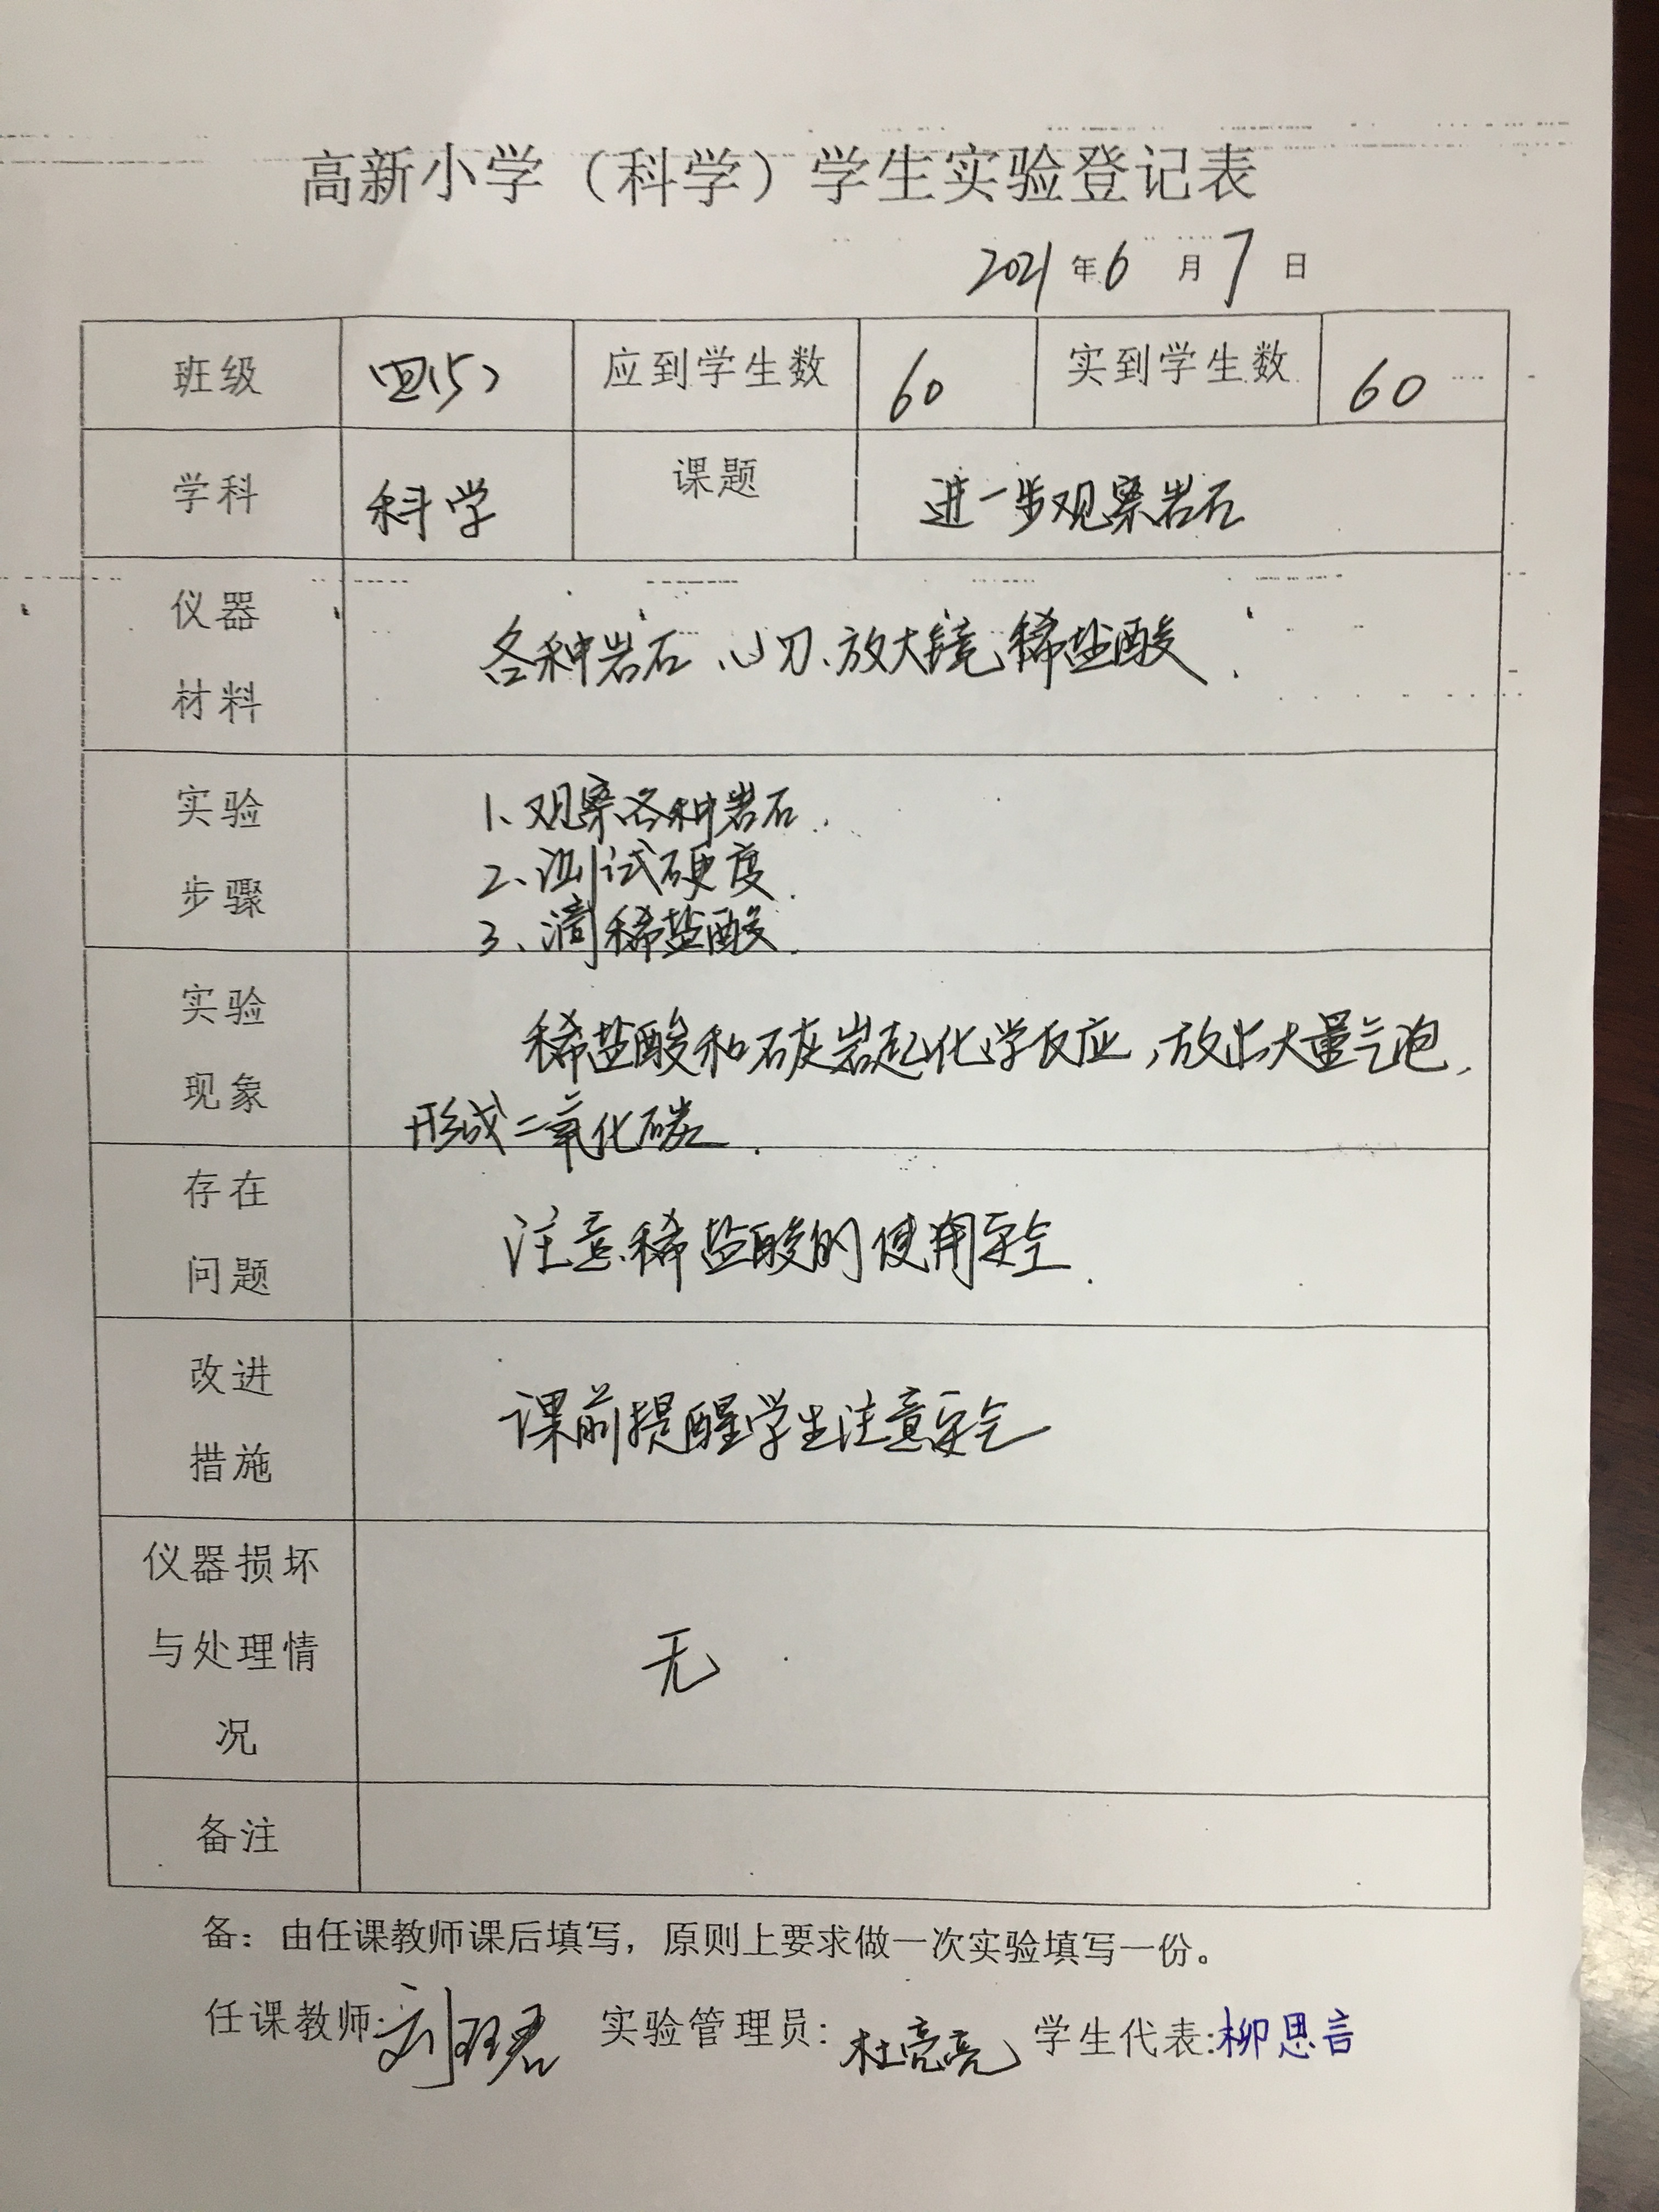 高新小学（科学）学生实验登记表
2021年6月7日
班级 四(5) 应到学生数 60 实到学生数 60
学科 科学 课题 进一步观察岩石
仪器
材料
各种岩石、小刀、放大镜、稀盐酸.
实验
步骤
1、观察各种岩石.
2、测试硬度.
3、滴稀盐酸.
实验
现象
稀盐酸和石灰岩起化学反应，放出大量气泡，
形成二氧化碳.
存在
问题
注意稀盐酸的使用安全.
改进
措施
课前提醒学生注意安全
仪器损坏
与处理情
况
无
备注
备：由任课教师课后填写，原则上要求做一次实验填写一份。
任课教师:刘珺 实验管理员:杜亮亮 学生代表:柳思言